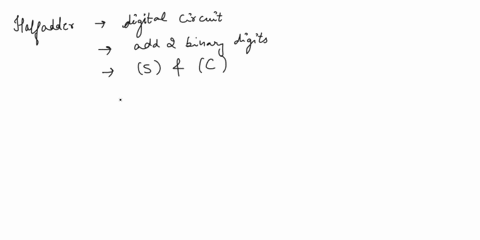 Halfadder → digital circuit
→ add 2 binary digits
→ (S) & (C)